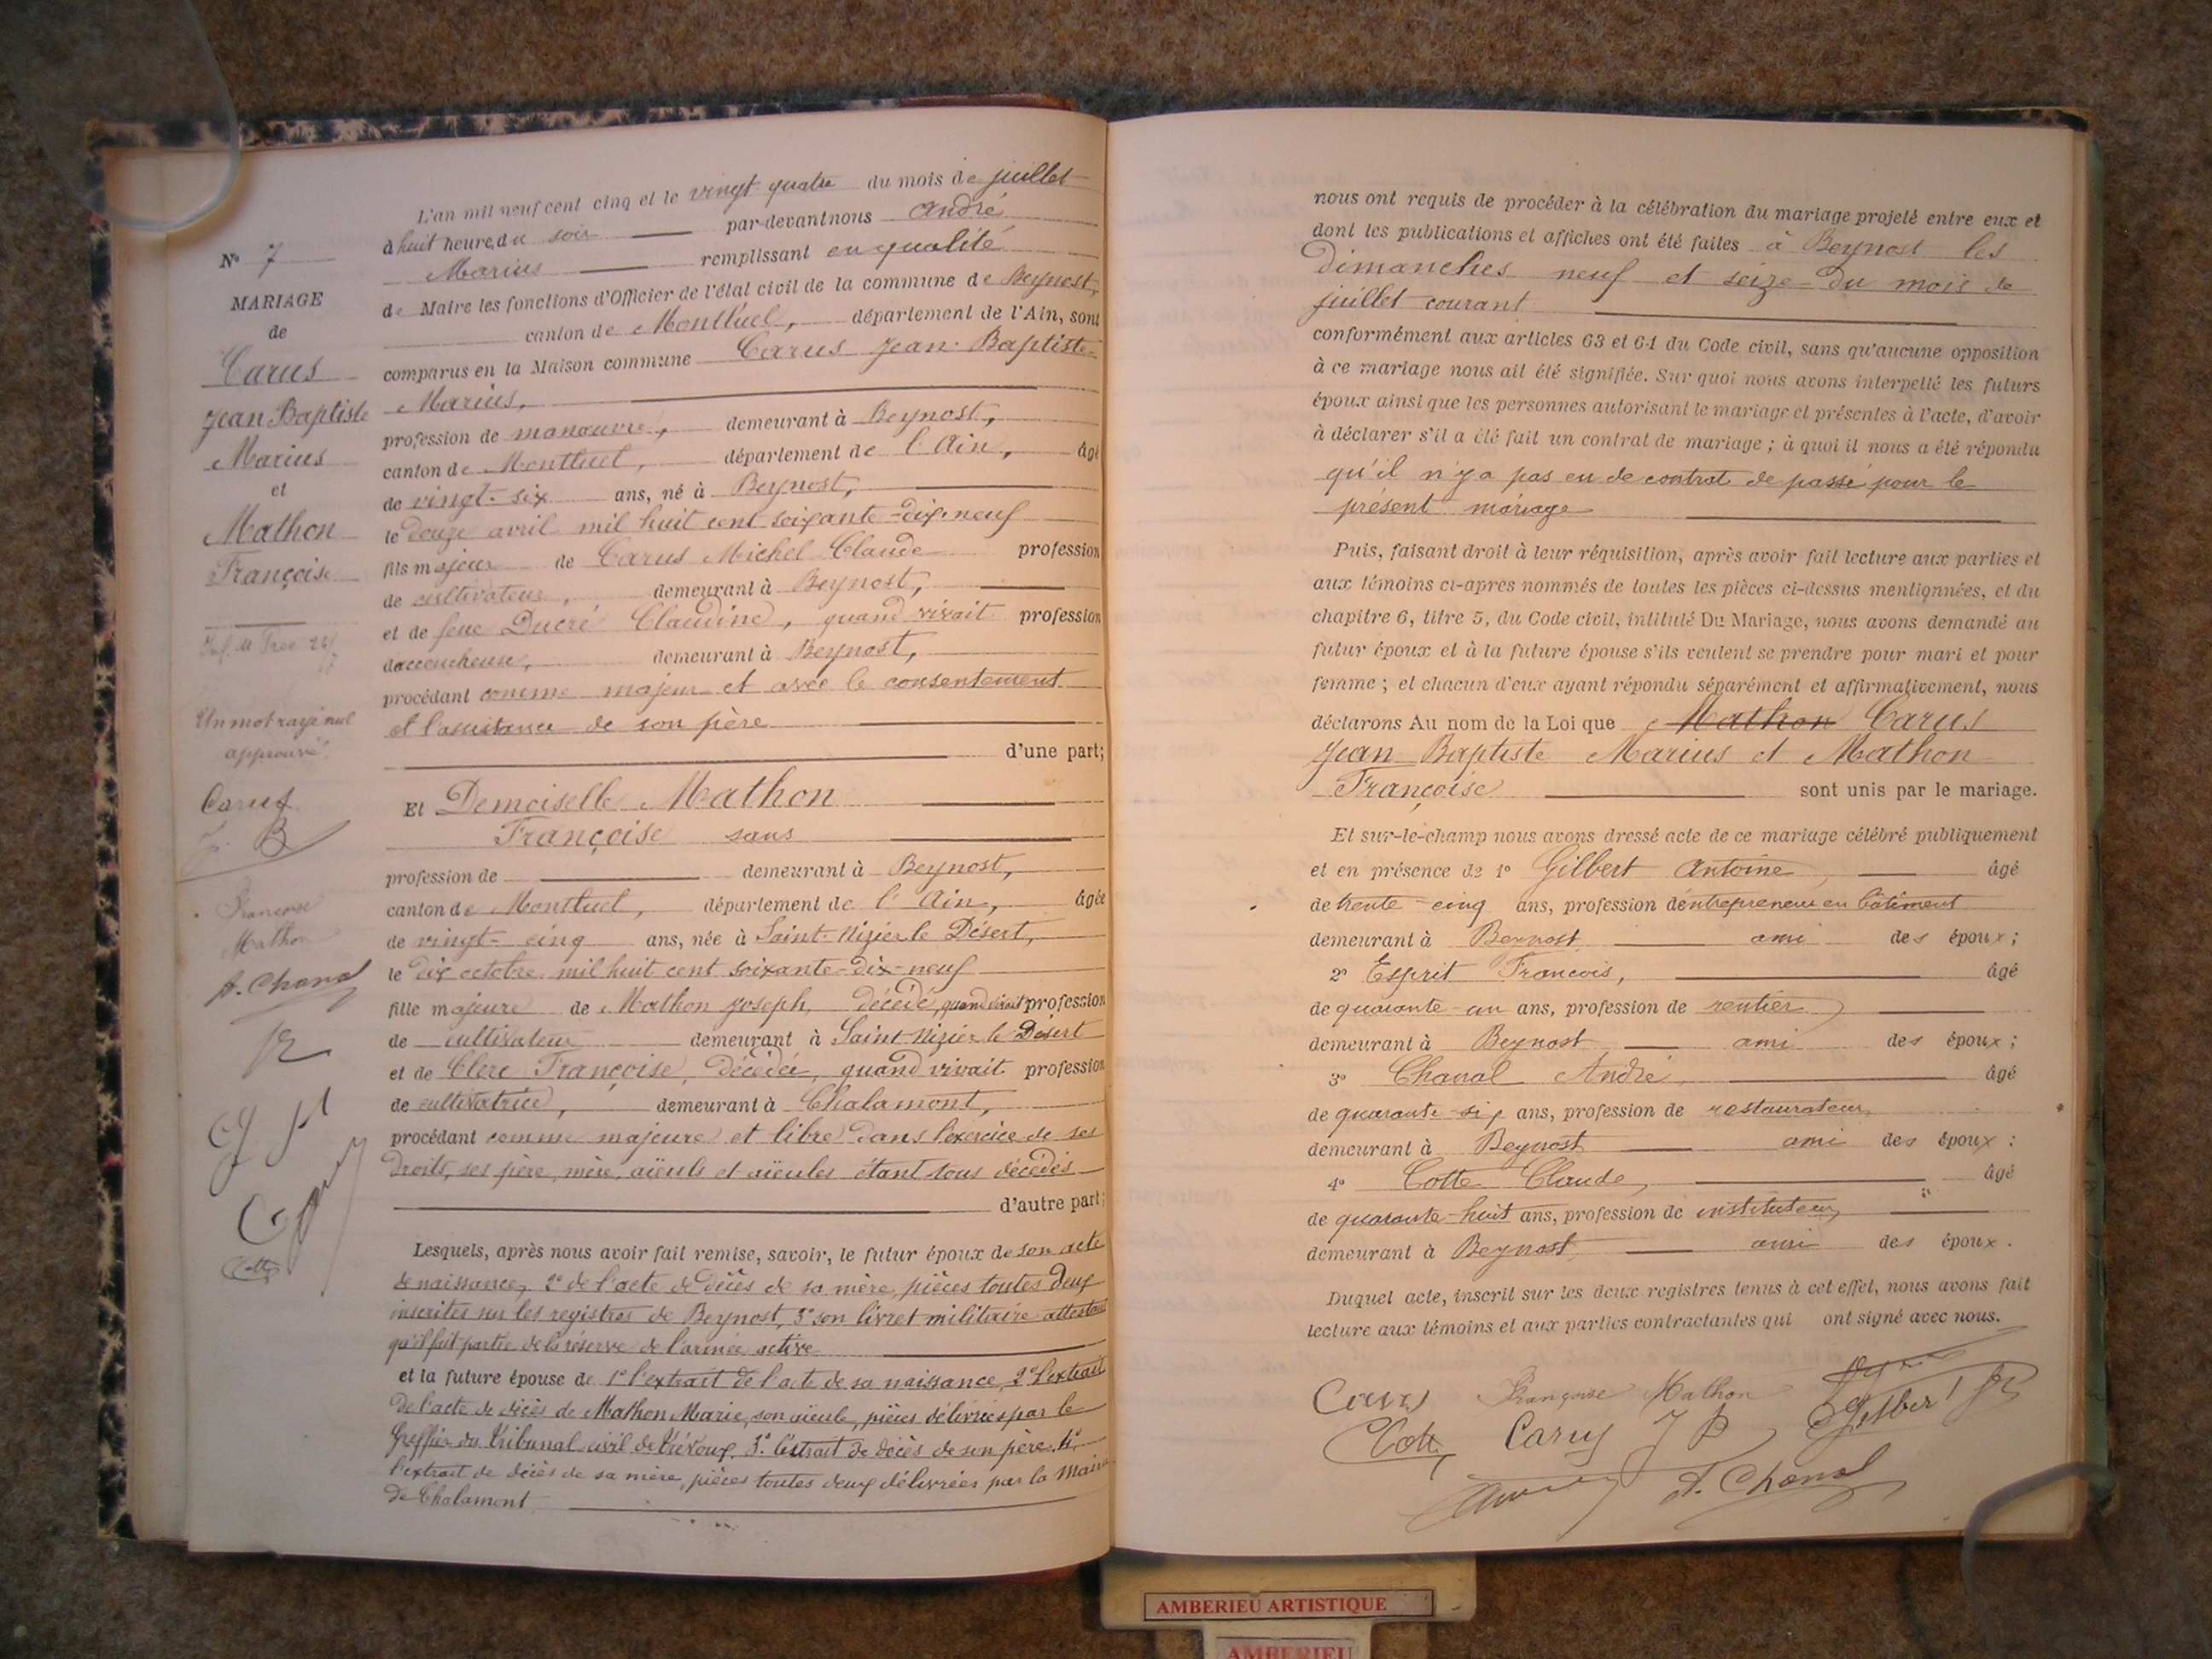 N° 7
MARIAGE
de
Carus
Jean Baptiste
Marius
et
Mathon
Françoise
Un mot rayé nul
approuvé.
Carus
J. B
Françoise
Mathon
A. Chanal
Cotte
L'an mil neuf cent cinq et le vingt quatre du mois de juillet
à huit heure du soir par-devant nous André
Marius remplissant en qualité
de Maire les fonctions d'Officier de l'état civil de la commune de Beynost,
canton de Montluel, département de l'Ain, sont
comparus en la Maison commune Carus Jean-Baptiste
Marius,
profession de manœuvre, demeurant à Beynost,
canton de Montluel, département de l'Ain, âgé
de vingt-six ans, né à Beynost,
le douze avril mil huit cent soixante-dix-neuf
fils majeur de Carus Michel Claude profession
de cultivateur, demeurant à Beynost,
et de feue Ducré Claudine, quand vivait profession
d'accoucheuse, demeurant à Beynost,
procédant comme majeur et avec le consentement
et l'assistance de son père
d'une part;
Et Demoiselle Mathon
Françoise sans
profession de demeurant à Beynost,
canton de Montluel, département de l'Ain, âgée
de vingt-cinq ans, née à Saint-Nizier le Désert,
le dix octobre mil huit cent soixante-dix-neuf
fille majeure de Mathon Joseph, décédé, quand vivait profession
de cultivateur demeurant à Saint-Nizier le Désert
et de Clerc Françoise, décédée, quand vivait profession
de cultivatrice, demeurant à Chalamont,
procédant comme majeure et libre dans l'exercice de ses
droits, ses père, mère, aïeuls et aïeules étant tous décédés
d'autre part;
Lesquels, après nous avoir fait remise, savoir, le futur époux de son acte
de naissance, 2° de l'acte de décès de sa mère, pièces toutes deux
inscrites sur les registres de Beynost, 3° son livret militaire attestant
qu'il fait partie de la réserve de l'armée active
et la future épouse de 1° l'extrait de l'acte de sa naissance, 2° l'extrait
de l'acte de décès de Mathon Marie, son aïeule, pièces délivrées par le
Greffier du Tribunal civil de Trévoux, 3° l'extrait de décès de son père, 4°
l'extrait de décès de sa mère, pièces toutes deux délivrées par la Mairie
de Chalamont
nous ont requis de procéder à la célébration du mariage projeté entre eux et
dont les publications et affiches ont été faites à Beynost les
dimanches neuf et seize du mois de
juillet courant
conformément aux articles 63 et 64 du Code civil, sans qu'aucune opposition
à ce mariage nous ait été signifiée. Sur quoi nous avons interpellé les futurs
époux ainsi que les personnes autorisant le mariage et présentes à l'acte, d'avoir
à déclarer s'il a été fait un contrat de mariage ; à quoi il nous a été répondu
qu'il n'y a pas eu de contrat de passé pour le
présent mariage
Puis, faisant droit à leur réquisition, après avoir fait lecture aux parties et
aux témoins ci-après nommés de toutes les pièces ci-dessus mentionnées, et du
chapitre 6, titre 5, du Code civil, intitulé Du Mariage, nous avons demandé au
futur époux et à la future épouse s'ils veulent se prendre pour mari et pour
femme ; et chacun d'eux ayant répondu séparément et affirmativement, nous
déclarons Au nom de la Loi que Mathon Carus
Jean-Baptiste Marius et Mathon
Françoise sont unis par le mariage.
Et sur-le-champ nous avons dressé acte de ce mariage célébré publiquement
et en présence de 1° Gilbert Antoine, âgé
de trente-cinq ans, profession d'entrepreneur en bâtiment
demeurant à Beynost ami des époux ;
2° Esprit François, âgé
de quarante-un ans, profession de rentier
demeurant à Beynost ami des époux ;
3° Chanal André, âgé
de quarante-six ans, profession de restaurateur,
demeurant à Beynost ami des époux ;
4° Cotte Claude, âgé
de quarante-huit ans, profession de instituteur,
demeurant à Beynost ami des époux.
Duquel acte, inscrit sur les deux registres tenus à cet effet, nous avons fait
lecture aux témoins et aux parties contractantes qui ont signé avec nous.
Carus Françoise Mathon
Cotte Carus J B Gilbert
A. Chanal
AMBERIEU ARTISTIQUE
AMBERIEU